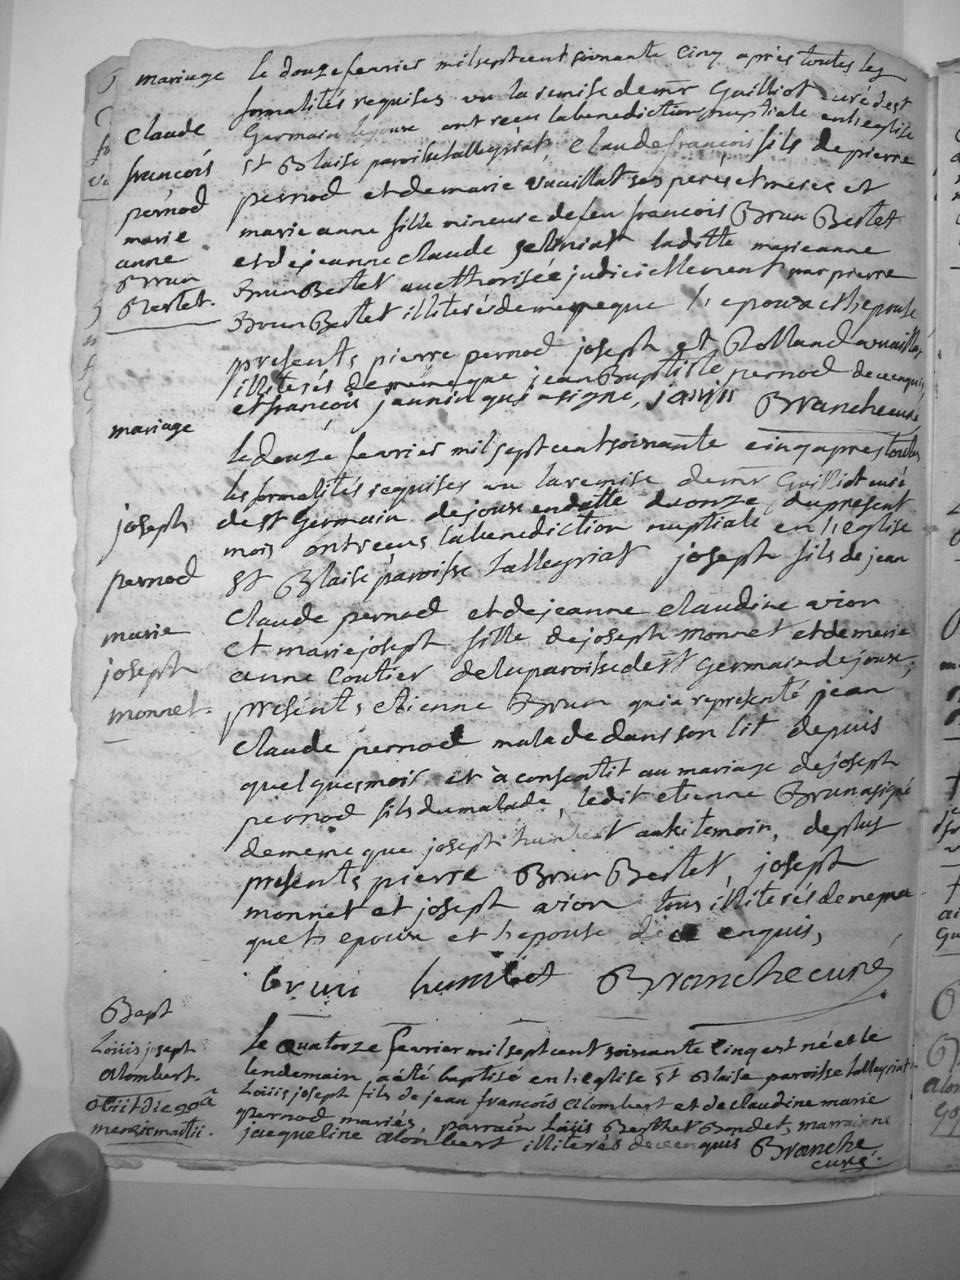 mariage
Claude
françois
pernod
marie
anne
Brun
Berlet.
le douze fevrier mil sept cent soixante cinq après toutes les
formalités requises vu la remise de mr Guilliot curé de st
Germain de joux ont recu la benediction nuptiale en l'eglise
st Blaise paroisse tallegriat, Claude françois fils de pierre
pernod et de marie vuaillat ses peres et meres et
marie anne fille mineure de feu françois Brun Berlet
et de jeanne claude ladille marie anne
Brun Berlet authorisée judiciellement par pierre
Brun Berlet illiterés de meme que l'epoux et l'epouse
presents pierre pernod joseph et Rolland vuaillat
illiterés de meme que jean Baptiste pernod de ce enquis
et françois jannin qui a signe, janin Branche curé
mariage
joseph
pernod
marie
joseph
monnet.
le douze fevrier mil sept cent soixante cinq apres toutes
les formalités requises vu la remise de mr Guilliot curé
de st Germain de joux en datte du onze du present
mois ont recus la benediction nuptiale en l'eglise
st Blaise paroisse tallegriat joseph fils de jean
Claude pernod et de jeanne claudine avion
et marie joseph fille de joseph monnet et de marie
anne Coutier de la paroisse de st Germain de joux,
presents, etienne Brun qui a representé jean
Claude pernod malade dans son lit depuis
quelques mois et à consentit au mariage de joseph
pernod fils du malade, ledit etienne Brun a signé
de meme que joseph humbert aussi temoin, de plus
presents pierre Brun Berlet, joseph
monnet et joseph avion tous illiterés de meme
que l'epoux et l'epouse de ce enquis,
brun humbert Branche curé
Bapt
Louis joseph
alombert.
obiit die
mensis martii.
le quatorze fevrier mil sept cent soixante cinq est né et le
lendemain a été baptisé en l'eglise st Blaise paroisse tallegriat
Louis joseph fils de jean françois alombert et de claudine marie
pernod mariés, parrain Louis Berthet Bondet, marraine
jacqueline alombert illiterés de ce enquis Branche
curé.